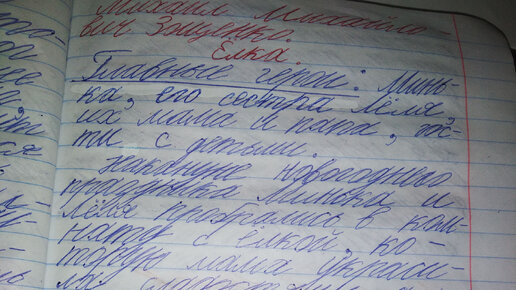 Михаил Михайло-
вич Зощенко.
Ёлка
Главные герои: Минь-
ка, его сестра Лёля,
их мама и папа, гос-
ти с детьми.
Накануне новогоднего
праздника Минька и
Лёля пробрались в ком-
нату с ёлкой, ко-
торую мама украси-